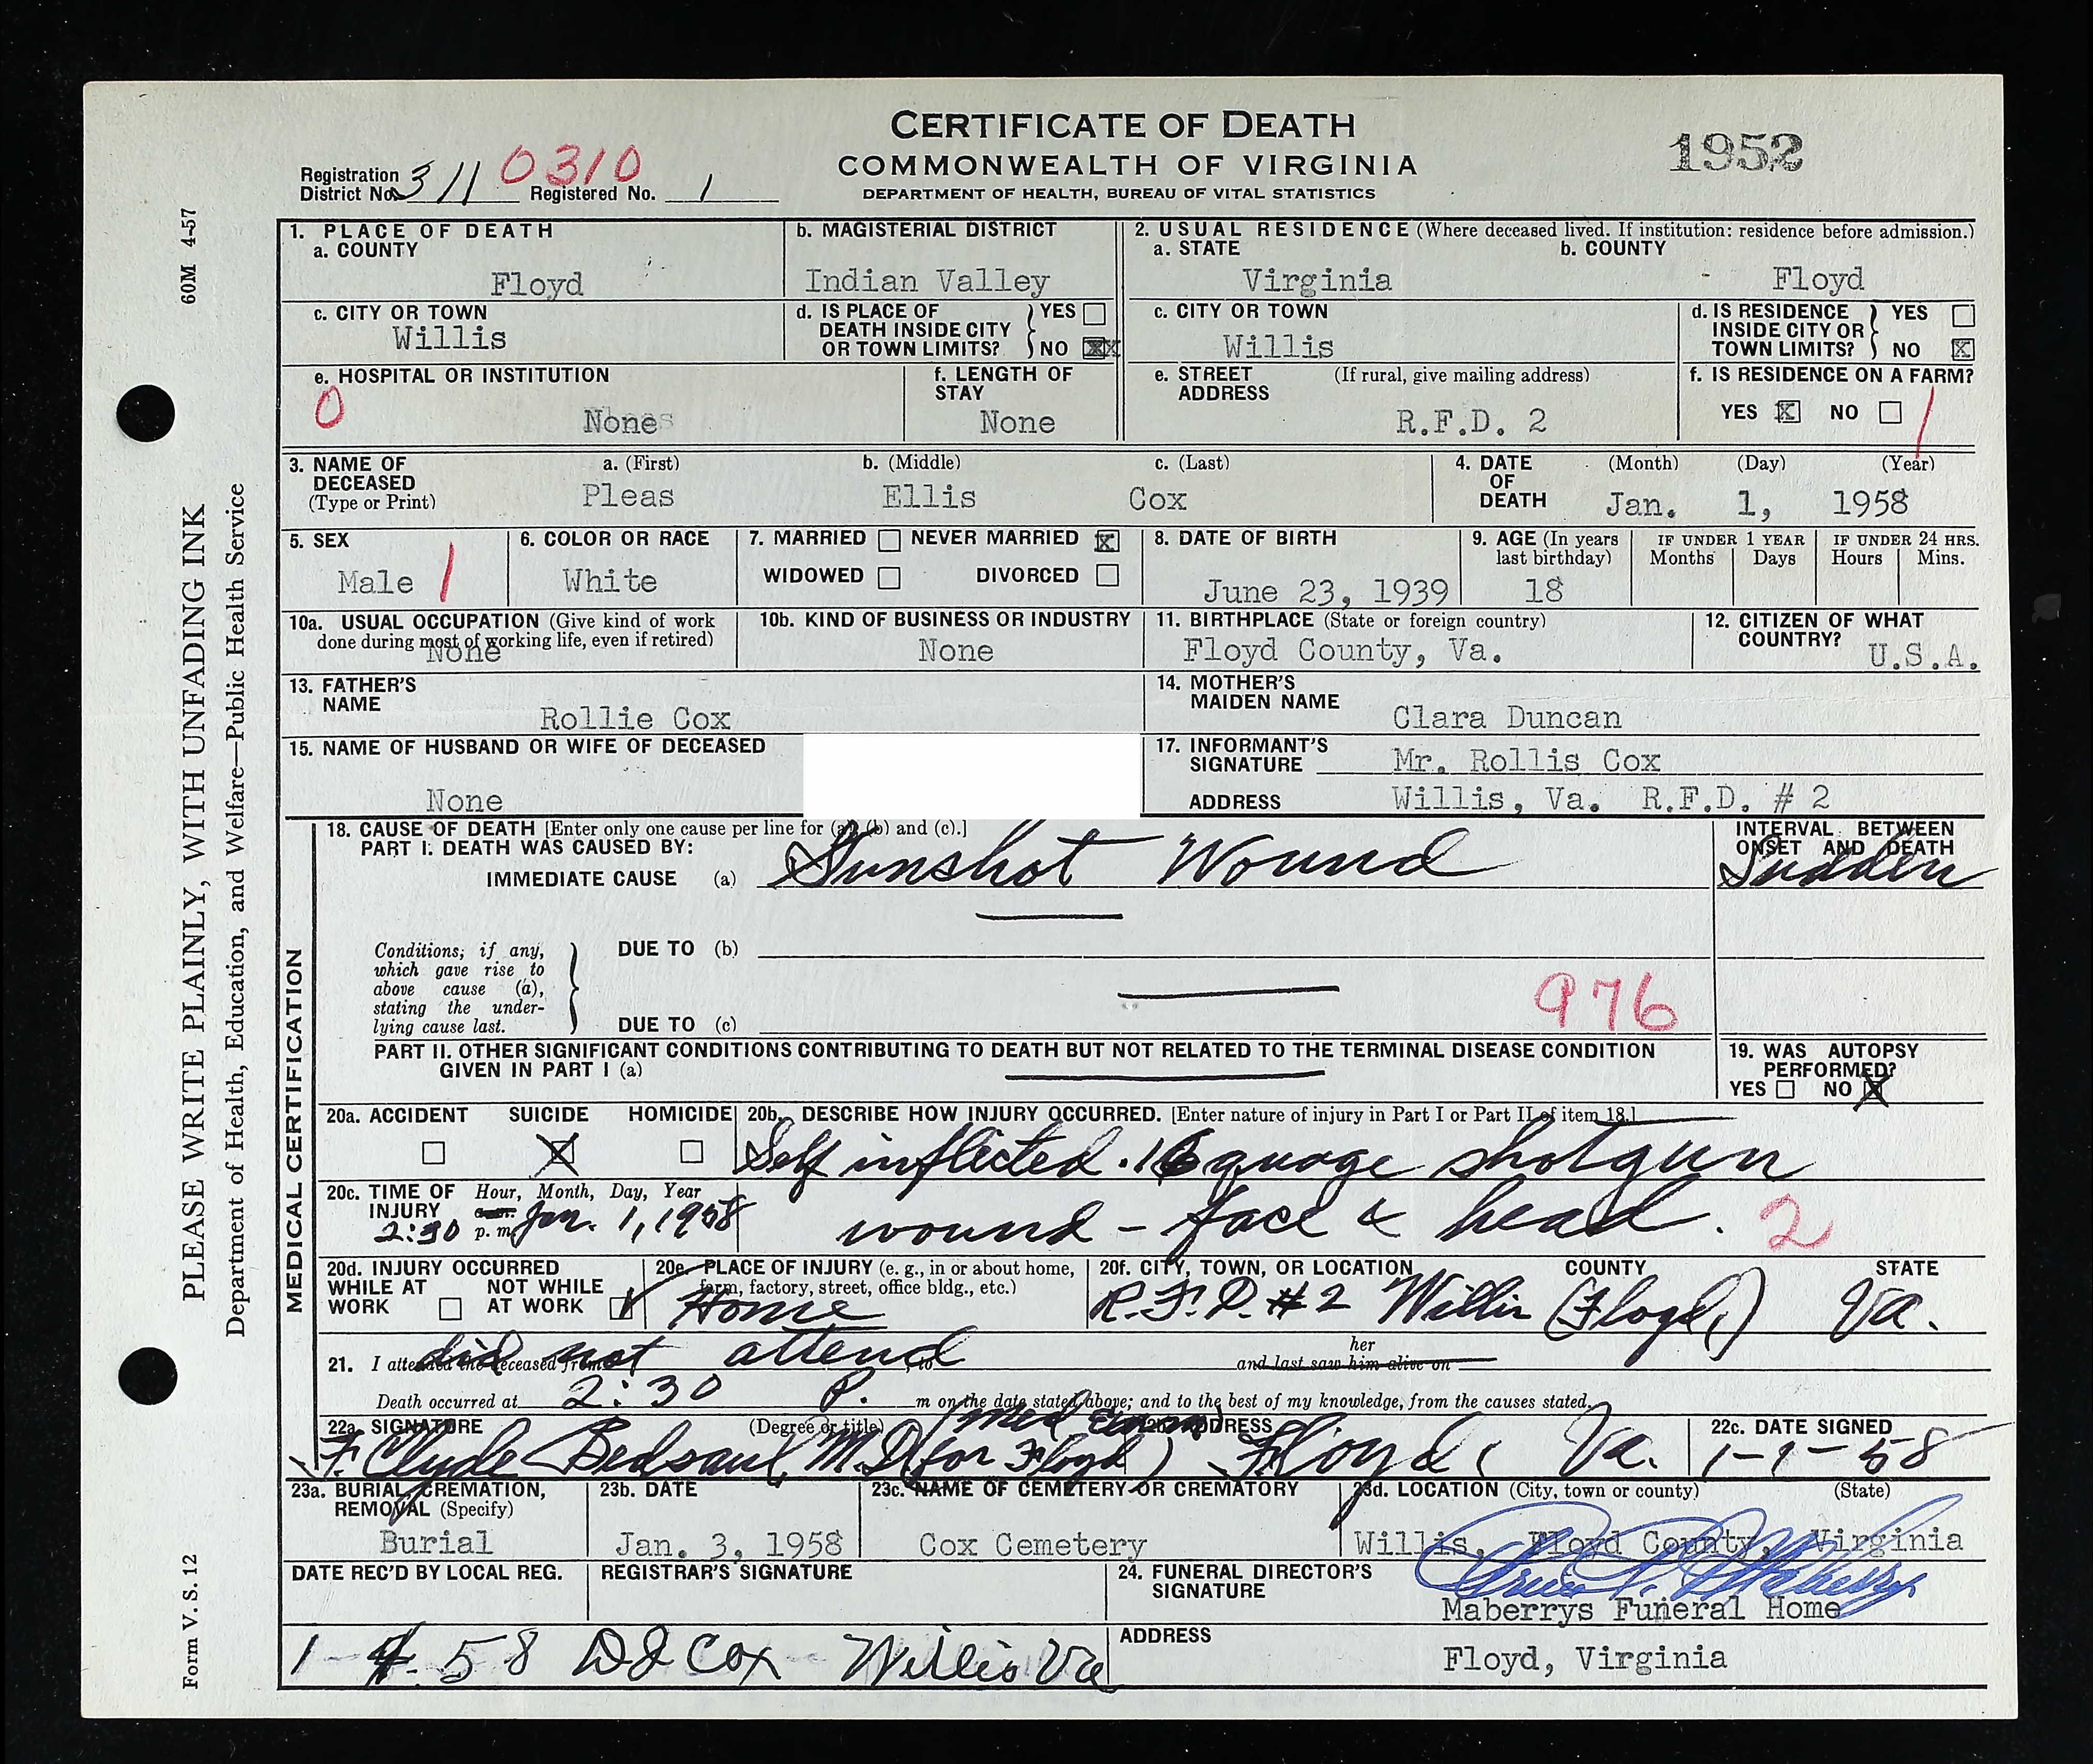 CERTIFICATE OF DEATH
COMMONWEALTH OF VIRGINIA
DEPARTMENT OF HEALTH, BUREAU OF VITAL STATISTICS
1952
Registration District No. 311 0310 Registered No. 1
60M 4-57
PLEASE WRITE PLAINLY, WITH UNFADING INK
Department of Health, Education, and Welfare—Public Health Service
Form V. S. 12
1. PLACE OF DEATH
a. COUNTY
Floyd
b. MAGISTERIAL DISTRICT
Indian Valley
2. USUAL RESIDENCE (Where deceased lived. If institution: residence before admission.)
a. STATE
Virginia
b. COUNTY
Floyd
c. CITY OR TOWN
Willis
d. IS PLACE OF DEATH INSIDE CITY OR TOWN LIMITS? YES NO X
c. CITY OR TOWN
Willis
d. IS RESIDENCE INSIDE CITY OR TOWN LIMITS? YES NO X
e. HOSPITAL OR INSTITUTION
0
None
f. LENGTH OF STAY
None
e. STREET ADDRESS (If rural, give mailing address)
R.F.D. 2
f. IS RESIDENCE ON A FARM?
YES X NO
3. NAME OF DECEASED (Type or Print)
a. (First) b. (Middle) c. (Last)
Pleas Ellis Cox
4. DATE OF DEATH (Month) (Day) (Year)
Jan. 1, 1958
5. SEX
Male 1
6. COLOR OR RACE
White
7. MARRIED NEVER MARRIED X
WIDOWED DIVORCED
8. DATE OF BIRTH
June 23, 1939
9. AGE (In years last birthday)
18
IF UNDER 1 YEAR
Months Days
IF UNDER 24 HRS.
Hours Mins.
10a. USUAL OCCUPATION (Give kind of work done during most of working life, even if retired)
None
10b. KIND OF BUSINESS OR INDUSTRY
None
11. BIRTHPLACE (State or foreign country)
Floyd County, Va.
12. CITIZEN OF WHAT COUNTRY?
U.S.A.
13. FATHER'S NAME
Rollie Cox
14. MOTHER'S MAIDEN NAME
Clara Duncan
15. NAME OF HUSBAND OR WIFE OF DECEASED
None
17. INFORMANT'S SIGNATURE Mr. Rollis Cox
ADDRESS Willis, Va. R.F.D. # 2
MEDICAL CERTIFICATION
18. CAUSE OF DEATH [Enter only one cause per line for (a), (b) and (c).]
PART I. DEATH WAS CAUSED BY:
IMMEDIATE CAUSE (a) Gunshot Wound
INTERVAL BETWEEN ONSET AND DEATH
Sudden
Conditions, if any, which gave rise to above cause (a), stating the underlying cause last.
DUE TO (b)
DUE TO (c)
976
PART II. OTHER SIGNIFICANT CONDITIONS CONTRIBUTING TO DEATH BUT NOT RELATED TO THE TERMINAL DISEASE CONDITION GIVEN IN PART I (a)
19. WAS AUTOPSY PERFORMED?
YES NO X
20a. ACCIDENT SUICIDE X HOMICIDE
20b. DESCRIBE HOW INJURY OCCURRED. [Enter nature of injury in Part I or Part II of item 18.]
Self inflected .16 guage shotgun
wound - face & head. 2
20c. TIME OF INJURY Hour, Month, Day, Year
2:30 p. m. Jan. 1, 1958
20d. INJURY OCCURRED
WHILE AT WORK NOT WHILE AT WORK
20e. PLACE OF INJURY (e. g., in or about home, farm, factory, street, office bldg., etc.)
Home
20f. CITY, TOWN, OR LOCATION COUNTY STATE
R.F.D. #2 Willis (Floyd,) Va.
21. I attended the deceased from did not attend, to and last saw him her alive on
Death occurred at 2:30 P. m on the date stated above; and to the best of my knowledge, from the causes stated.
22a. SIGNATURE (Degree or title)
F. Clyde Bedsaul, M.D. (for Floyd)
22b. ADDRESS
Floyd, Va.
22c. DATE SIGNED
1-1-58
23a. BURIAL, CREMATION, REMOVAL (Specify)
Burial
23b. DATE
Jan. 3, 1958
23c. NAME OF CEMETERY OR CREMATORY
Cox Cemetery
23d. LOCATION (City, town or county) (State)
Willis, Floyd County, Virginia
DATE REC'D BY LOCAL REG.
1-4-58
REGISTRAR'S SIGNATURE
Cox Willis Va
24. FUNERAL DIRECTOR'S SIGNATURE
Maberrys Funeral Home
ADDRESS
Floyd, Virginia